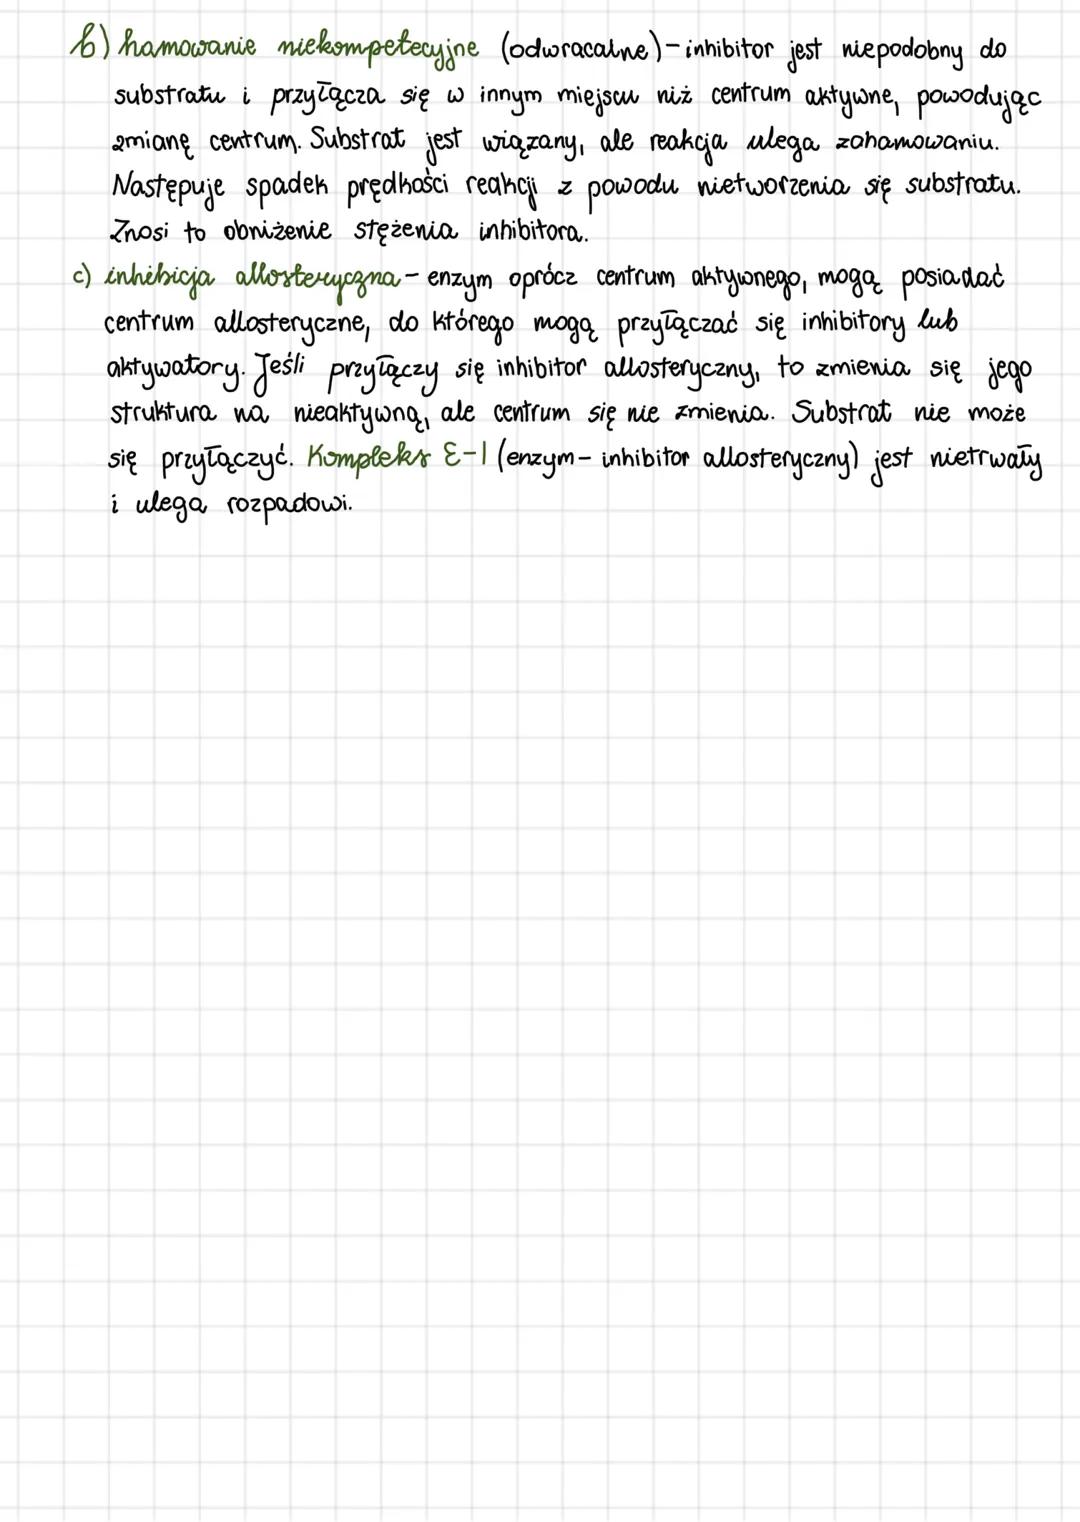 b) hamowanie niekompetecyjne (odwracalne) - inhibitor jest niepodobny do
substratu i przyłącza się w innym miejscu niż centrum aktywne, powodując
zmianę centrum. Substrat jest wiązany, ale reakcja ulega zahamowaniu.
Następuje spadek prędkości reakcji z powodu nietworzenia się substratu.
Znosi to obniżenie stężenia inhibitora.
c) inhibicja allosteryczna - enzym oprócz centrum aktywnego, mogą posiadać
centrum allosteryczne, do którego mogą przyłączać się inhibitory lub
aktywatory. Jeśli przyłączy się inhibitor allosteryczny, to zmienia się jego
struktura na nieaktywną, ale centrum się nie zmienia. Substrat nie może
się przyłączyć. Kompleks E-I (enzym - inhibitor allosteryczny) jest nietrwały
i ulega rozpadowi.